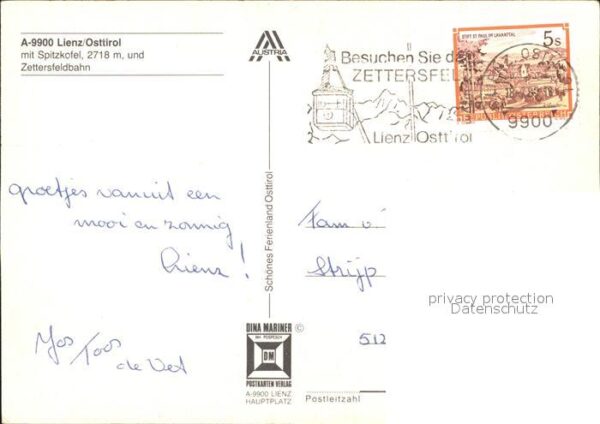 A-9900 Lienz/Osttirol
mit Spitzkofel, 2718 m, und
Zettersfeldbahn
AUSTRIA
Besuchen Sie d
ZETTERSFEL
Lienz Osttirol
STIFT ST. PAUL IM LAVANTTAL
5s
REPUBLIK
9900
groetjes vanuit een
mooi en zonnig
Lienz!
Jos Toos
de Vet
Schönes Ferienland Osttirol
Fam v.
Strijp
512
privacy protection
Datenschutz
DINA MARINER ©
DM
POSTKARTEN VERLAG
A-9900 LIENZ
HAUPTPLATZ
Postleitzahl